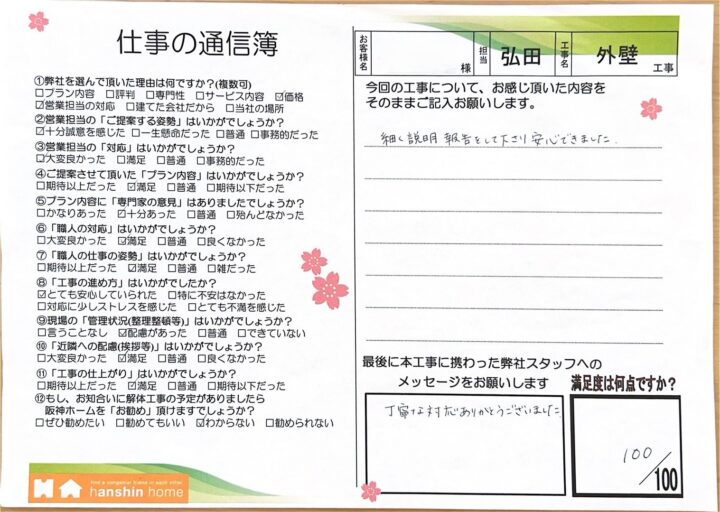 仕事の通信簿
お客様名 様 担当 弘田 工事名 外壁 工事
①弊社を選んで頂いた理由は何ですか?(複数可)
□プラン内容 □評判 □専門性 □サービス内容 ☑価格
☑営業担当の対応 □建てた会社だから □当社の場所
②営業担当の「ご提案する姿勢」はいかがでしょうか?
☑十分誠意を感じた □一生懸命だった □普通 □事務的だった
③営業担当の「対応」はいかがでしょうか?
☑大変良かった □満足 □普通 □事務的だった
④ご提案させて頂いた「プラン内容」はいかがでしょうか?
□期待以上だった ☑満足 □普通 □期待以下だった
⑤プラン内容に「専門家の意見」はありましたでしょうか?
□かなりあった ☑十分あった □普通 □殆んどなかった
⑥「職人の対応」はいかがでしょうか?
□大変良かった ☑満足 □普通 □良くなかった
⑦「職人の仕事の姿勢」はいかがでしょうか?
□期待以上だった ☑満足 □普通 □雑だった
⑧「工事の進め方」はいかがでしたか?
☑とても安心していられた □特に不安はなかった
□対応に少しストレスを感じた □とても不満を感じた
⑨現場の「管理状況(整理整頓等)」はいかがでしょうか?
□言うことなし ☑配慮があった □普通 □できていない
⑩「近隣への配慮(挨拶等)」はいかがでしょうか?
□大変良かった ☑満足 □普通 □良くなかった
⑪「工事の仕上がり」はいかがでしょうか?
□期待以上だった ☑満足 □普通 □期待以下だった
⑫もし、お知合いに解体工事の予定がありましたら
阪神ホームを「お勧め」頂けますでしょうか?
□ぜひ勧めたい □勧めてもいい ☑わからない □勧められない
find a congenial friend in each other
hanshin home
今回の工事について、お感じ頂いた内容を
そのままご記入お願いします。
細く説明 報告をして下さり安心できました.
最後に本工事に携わった弊社スタッフへの
メッセージをお願いします
丁寧な対応ありがとうございました
満足度は何点ですか?
100
/100